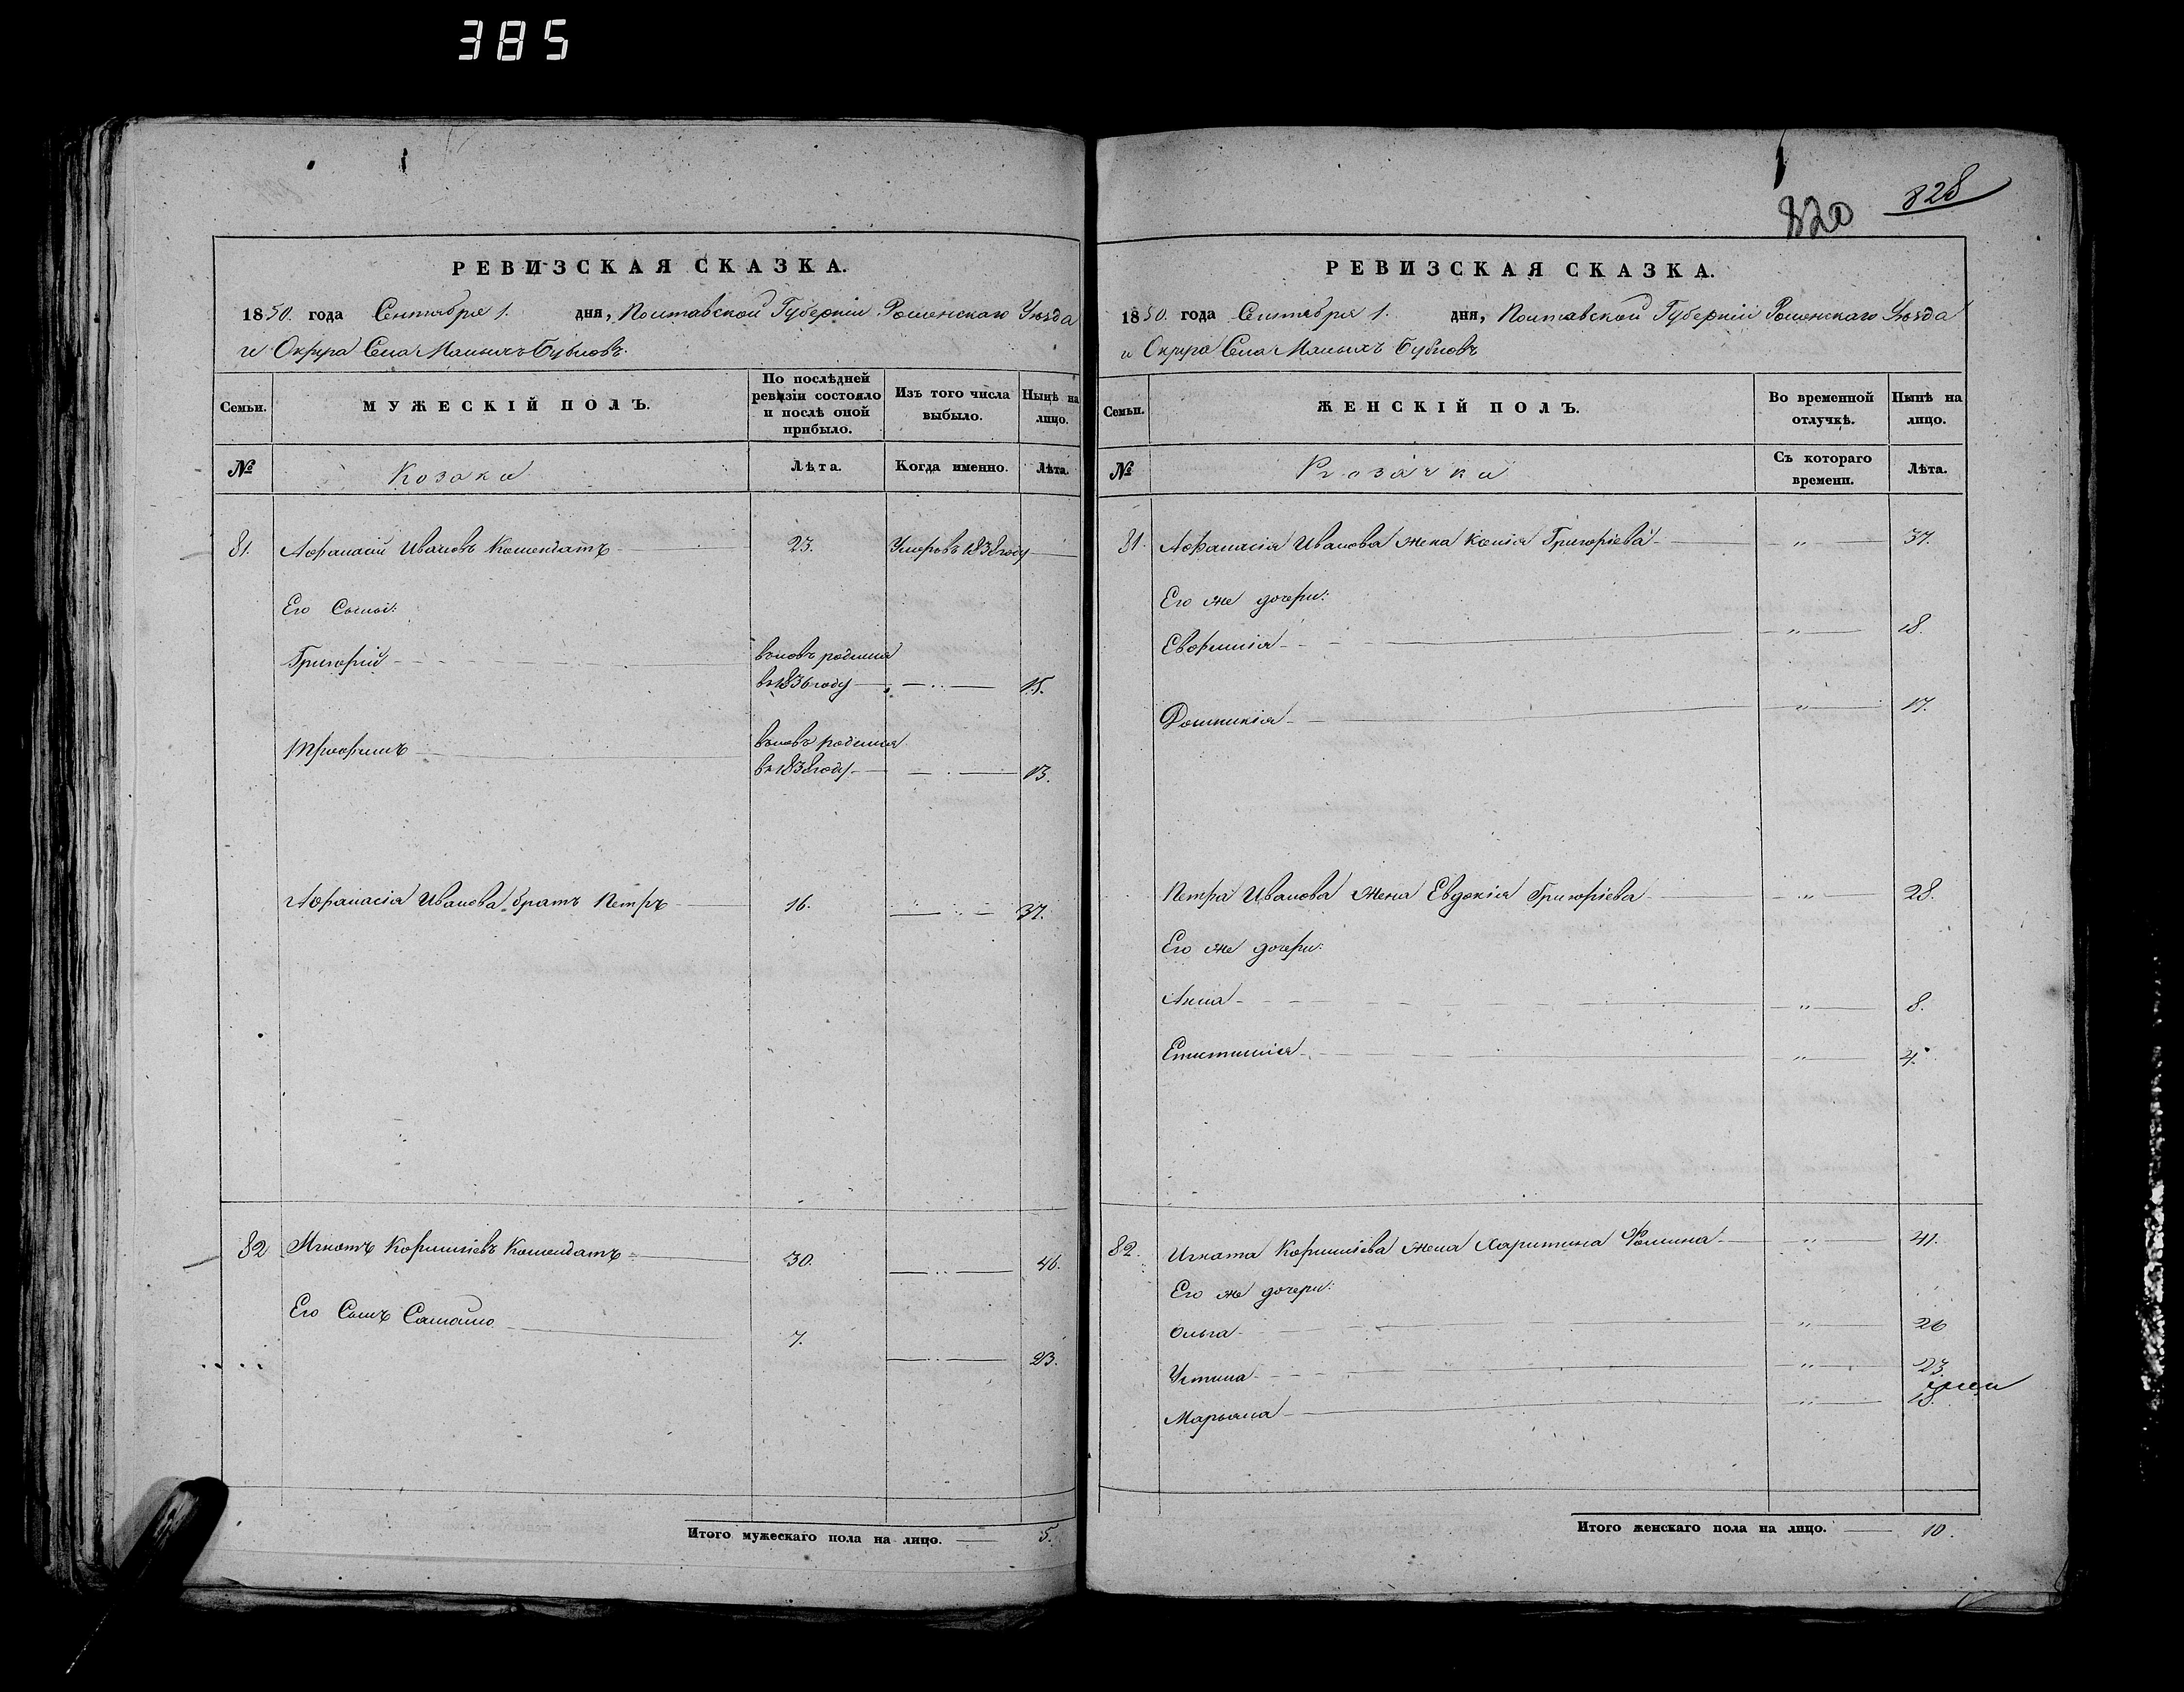 385
828
820
РЕВИЗСКАЯ СКАЗКА.
1850. года Сентября 1. дня, Полтавской Губерніи Роменскаго Уѣзда
и Округа Села Малыхъ Бубновъ.
Семьи. МУЖЕСКІЙ ПОЛЪ. По послѣдней ревизіи состояло и послѣ оной прибыло. Изъ того числа выбыло. Нынѣ на лицо.
№ Козаки Лѣта. Когда именно. Лѣта.
81. Афанасій Ивановъ Комендатъ 23. Умеръ въ 1838 году
Его Сыны:
Григорій вновь родился
въ 1836 году 15.
Трофимъ вновь родился
въ 1838 году 13.
Афанасія Иванова братъ Петръ 16. 37.
82 Игнатъ Корниліевъ Комендатъ 30. 46.
Его Сынъ Самойло 7. 23.
Итого мужескаго пола на лицо. 5.
РЕВИЗСКАЯ СКАЗКА.
1850. года Сентября 1. дня, Полтавской Губерніи Роменскаго Уѣзда
и Округа Села Малыхъ Бубновъ
Семьи. ЖЕНСКІЙ ПОЛЪ. Во временной отлучкѣ. Нынѣ на лицо.
№ Козачки Съ котораго времени. Лѣта.
81. Афанасія Иванова жена Ксенія Григоріева " 37.
Его же дочери:
Евфимія " 18.
Домникія " 17.
Петра Иванова жена Евдокія Григоріева " 28.
Его же дочери:
Анна " 8.
Епистимія " 4.
82. Игната Корниліева жена Харитина Фомина " 41.
Его же дочери:
Ольга " 26
Устина " 23.
Марьяна " 13.
Итого женскаго пола на лицо. 10.